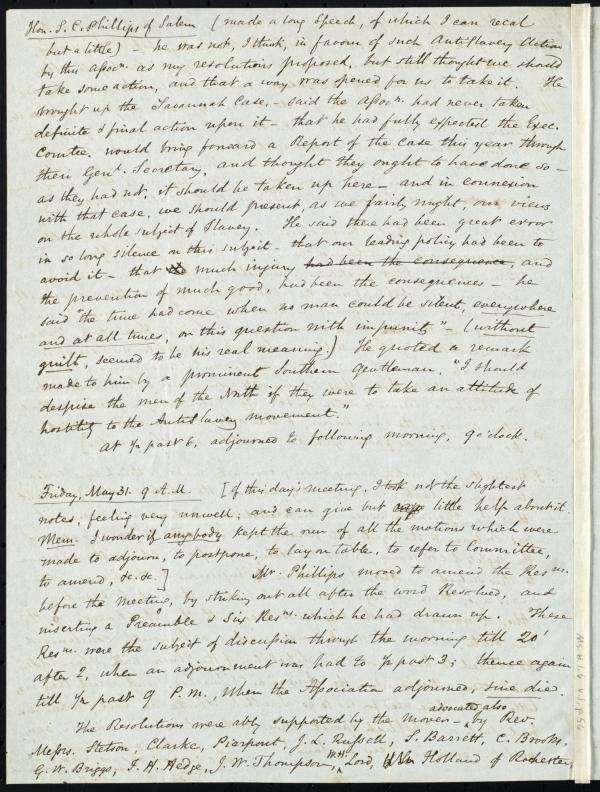 Hon. S. C. Phillips of Salem (made a long speech, of which I can recal
but a little) - he was not, I think, in favour of such AntiSlavery Action
by this Assocn. as my resolutions proposed, but still thought we should
take some action, and that a way was opened for us to take it. He
brought up the Savannah Case, - said the Assocn. had never taken
definite & final action upon it - that he had fully expected the Exec.
Comtee. would bring forward a Report of the case this year through
their Genl. Secretary, and thought they ought to have done so -
as they had not, it should be taken up here - and in connexion
with that case, we should present, as we fairly might, our views
on the whole subject of Slavery. He said there had been great error
in so long silence on this subject - that our leading policy had been to
avoid it - that much injury had been the consequence, and
the prevention of much good, had been the consequences - he
said "the time had come when no man could be silent, everywhere
and at all times, on this question with impunity" - (without
guilt, seemed to be his real meaning.) He quoted a remark
made to him by a prominent Southern gentleman, "I should
despise the men of the North if they were to take an attitude of
hostility to the AntiSlavery movement."
At ½ past 6, adjourned to following morning, 9 o'clock.
Friday, May 31. 9 A.M. [Of this day's meeting, I took not the slightest
notes, feeling very unwell, and can give but little help about it.
Mem. I wonder if anybody kept the run of all the motions which were
made to adjourn, to postpone, to lay on table, to refer to Committee,
to amend, &c. &c.] Mr. Phillips moved to amend the Resns.
before the meeting, by striking out all after the word Resolved, and
inserting a Preamble & Six Resns. which he had drawn up. These
Resns. were the subject of discussion through the morning till 20'
after 2, when an adjournment was had to ½ past 3; thence again
till ½ past 9 P.M., when the Association adjourned, sine die.
The Resolutions were ably supported by the mover - advocated also by Rev.
Messrs. Stetson, Clarke, Pierpont, J. L. Russell, S. Barrett, C. Brooks,
G. W. Briggs, F. H. Hedge, J. W. Thompson, W. H. Lord, Holland of Rochester,
MS.B.1.6 v.1, p.56